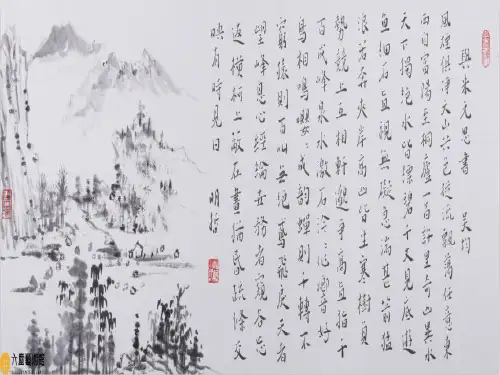 與朱元思書 吴均
風煙俱淨天山共色從流飄蕩任意東
西自富陽至桐廬一百許里奇山異水
天下獨絕水皆縹碧千丈見底游
魚細石直視無礙急湍甚箭猛
浪若奔夾岸高山皆生寒樹負
勢競上互相軒邈爭高直指千
百成峰泉水激石泠泠作響好
鳥相鳴嚶嚶成韻蟬則千轉不
窮猿則百叫無絕鳶飛戾天者
望峰息心經綸世務者窺谷忘
返橫柯上蔽在晝猶昏疏條交
映有時見日 明哲